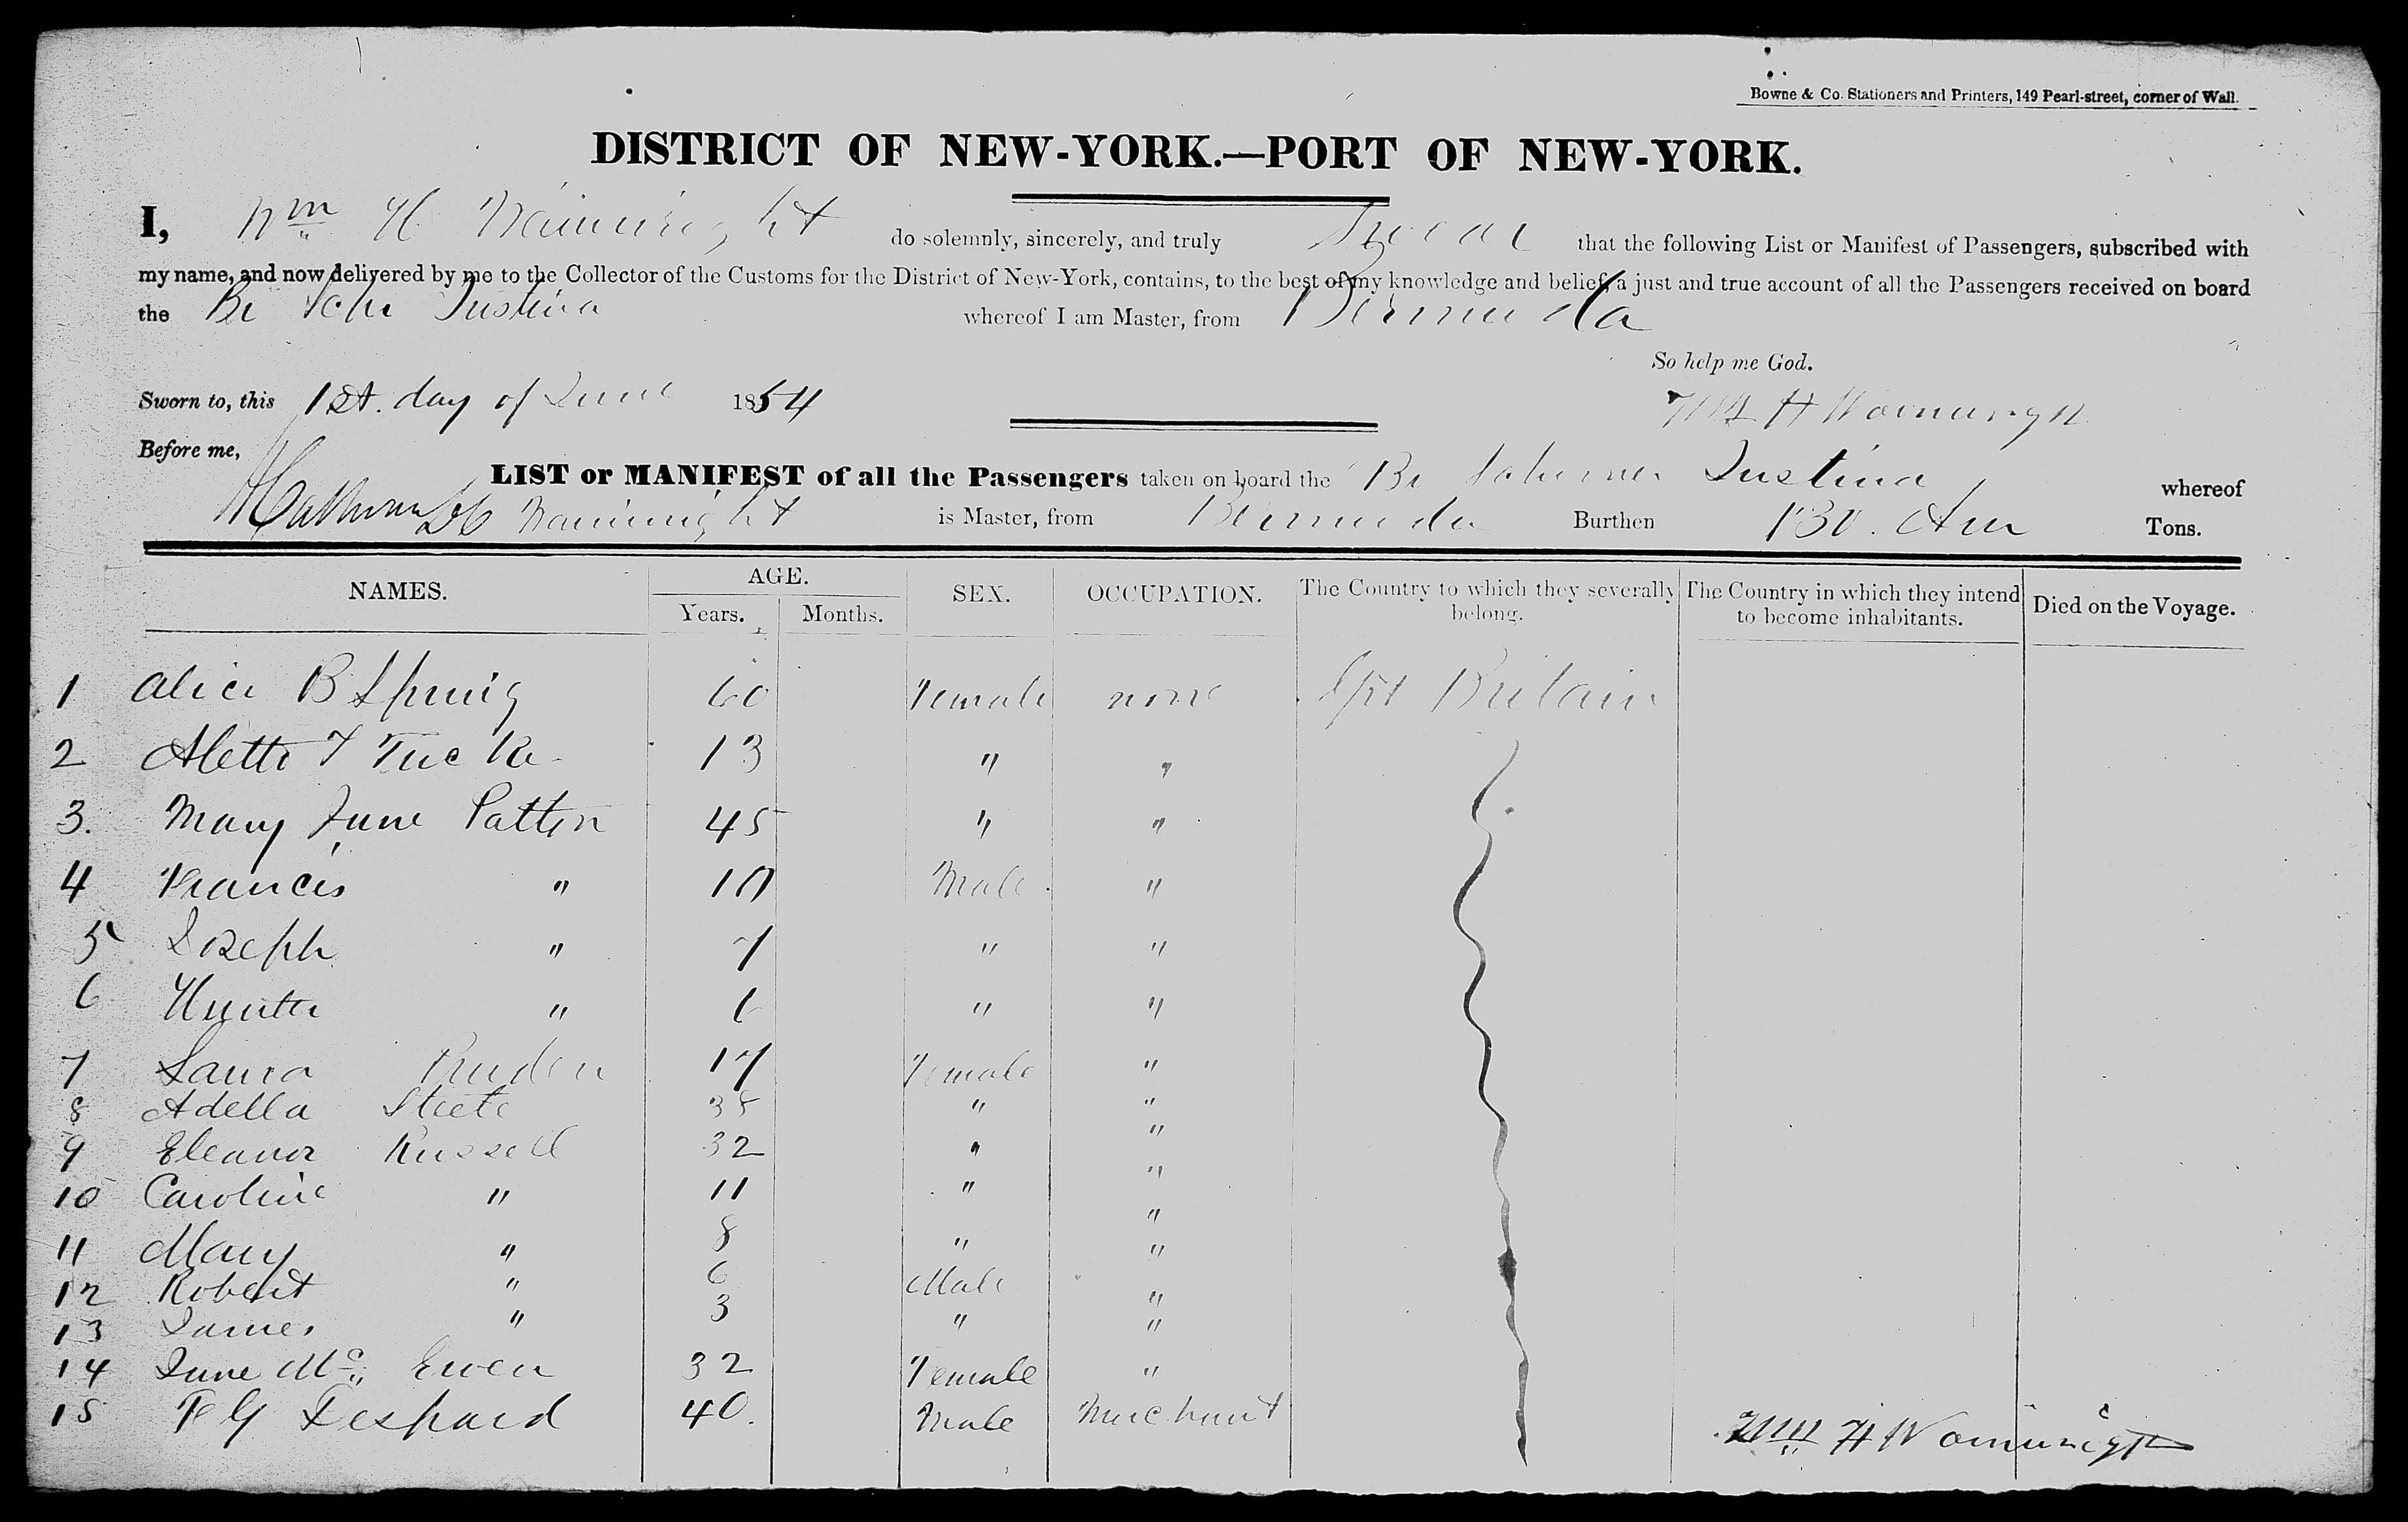 Bowne & Co. Stationers and Printers, 149 Pearl-street, corner of Wall.
DISTRICT OF NEW-YORK.—PORT OF NEW-YORK.
I, Wm H Wainwright do solemnly, sincerely, and truly Swear that the following List or Manifest of Passengers, subscribed with
my name, and now delivered by me to the Collector of the Customs for the District of New-York, contains, to the best of my knowledge and belief, a just and true account of all the Passengers received on board
the Br Schr Justina whereof I am Master, from Bermuda
So help me God.
Sworn to, this 1st. day of June 1854
Wm H Wainwright
Before me,
LIST or MANIFEST of all the Passengers taken on board the Br Schooner Justina whereof
Wainwright is Master, from Bermuda Burthen 130 Tons.
NAMES. AGE. SEX. OCCUPATION. The Country to which they severally belong. The Country in which they intend to become inhabitants. Died on the Voyage.
Years. Months.
1 Alice B 60 Female none Grt Britain
2 Aletta T Tucker 13 " "
3. Mary Jane Patten 45 " "
4 Francis " 10 Male "
5 Joseph " 7 " "
6 Hunter " 6 " "
7 Laura 17 Female "
8 Adella 38 " "
9 Eleanor Russell 32 " "
10 Caroline " 11 " "
11 Mary " 8 " "
12 Robert " 6 Male "
13 James " 3 " "
14 Jane Mc Ewen 32 Female "
15 F G Despard 40. Male Merchant
Wm H Wainwright